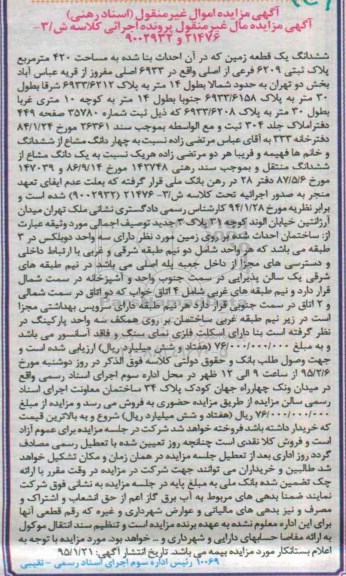 آگهی مزایده اموال غیرمنقول (اسناد رهنی)
آگهی مزایده مال غیر منقول پرونده اجرائی کلاسه ش/۳-
۲۱۴۷۶ و ۹۰۰۲۹۳۲
ششدانگ یک قطعه زمین که در آن احداث بنا شده به مساحت ۴۲۰ مترمربع
پلاک ثبتی ۶۲۰۹ فرعی از اصلی واقع در ۶۹۳۳ اصلی مفروز از قریه عباس آباد
بخش دو تهران به حدود شمالا بطول ۱۴ متر به پلاک ۶۹۳۳/۶۲۱۲ شرقا بطول
۳۰ متر به پلاک ۶۹۳۳/۶۱۵۸ جنوبا بطول ۱۴ متر به کوچه ۱۰ متری غربا
بطول ۳۰ متر به پلاک ۶۹۳۳/۶۲۰۸ که ذیل ثبت شماره ۳۵۷۸۰ صفحه ۴۴۹
دفتراملاک جلد ۳۰۴ ثبت و مع الواسطه بموجب سند ۲۶۳۶۱ مورخ ۸۴/۱/۲۴
دفترخانه ۳۳۳ به آقای عباس مرتضی زاده نسبت به چهار دانگ مشاع از ششدانگ
و خانم ها فهیمه و فریبا هر دو مرتضی زاده هریک نسبت به یک دانگ مشاع از
ششدانگ منتقل و بموجب سند رهنی ۱۴۳۷۴۸ مورخ ۸۶/۹/۱۴ و ۱۴۷۰۳۹
مورخ ۸۷/۵/۶ دفتر ۲۸ در رهن بانک ملی قرار گرفته که بعلت عدم ایفای تعهد
منجر به صدور اجرائیه تحت کلاسه ش/۳- ۲۱۴۷۶ (۹۰۰۲۹۳۲) شده است و
برابر نظریه مورخ ۹۴/۱/۲۸ کارشناس رسمی دادگستری نشانی ملک تهران میدان
آرژانتین خیابان الوند کوچه ۳۱ پلاک ۳ جدید توصیف اجمالی مورد وثیقه عبارت
از: ساختمان احداث شده بر روی زمین مورد نظر دارای سه واحد دوبلکس در ۳
طبقه می باشد که هر واحد شامل دو نیم طبقه شرقی و غربی با ارتباط داخلی
و دسترسی های مجزا از داخل جعبه پله اصلی می باشد در نیم طبقه های
شرقی یک سالن پذیرایی در سمت جنوب واحد و آشپزخانه در سمت شمال
قرار دارد و نیم طبقه های غربی شامل ۴ اتاق خواب که دو اتاق در سمت شمالی
و ۲ اتاق در سمت جنوبی قرار دارد هر نیم طبقه دارای سرویس بهداشتی مجزا
است در زیر نیم طبقه غربی ساختمان بر روی همکف سه واحد پارکینگ در
نظر گرفته است بنا دارای اسکلت فلزی نمای سنگ و فاقد آسانسور می باشد
و به مبلغ ۷۶/۰۰۰/۰۰۰/۰۰۰ (هفتاد و شش میلیارد ریال) ارزیابی شده است و
جهت وصول طلب بانک و حقوق دولتی کلاسه فوق الذکر در روز دوشنبه مورخ
۹۵/۲/۶ از ساعت ۹ الی ۱۲ ظهر در محل اداره سوم اجرای اسناد رسمی واقع
در میدان ونک چهارراه جهان کودک پلاک ۳۴ ساختمان معاونت اجرای اسناد
رسمی سالن مزایده از طریق مزایده حضوری به فروش می رسد و مزایده از مبلغ
۷۶/۰۰۰/۰۰۰/۰۰۰ ریال (هفتاد و شش میلیارد ریال) شروع و به بالاترین قیمت
که خریدار داشته باشد فروخته خواهد شد شرکت در جلسه مزایده برای عموم آزاد
است و فروش کلا نقدی است چنانچه روز تعیین شده با تعطیل رسمی مصادف
گردد روز اداری بعد از تعطیل جلسه مزایده در همان زمان و مکان تشکیل خواهد
شد طالبین و خریداران می توانند جهت شرکت در مزایده در وقت مقرر با ارائه
چک تضمین شده بانک ملی به مبلغ پایه در جلسه مزایده به نشانی فوق شرکت
نمایند ضمنا بدهی های مربوط به آب برق گاز اعم از حق انشعاب و اشتراک و
مصرف و نیز بدهی های مالیاتی و عوارض شهرداری و غیره که رقم قطعی آنها
برای این اداره معلوم نشده به عهده برنده مزایده است و تنظیم سند انتقال موکول
به ارائه مفاصا حسابهای دارایی و شهرداری و .. خواهد بود. مورد مزایده با توجه به
اعلام بستانکار مورد مزایده بیمه می باشد. تاریخ انتشار آگهی: ۹۵/۱/۲۱
۱۰۰۶۹ رئیس اداره سوم اجرای اسناد رسمی - نقیبی